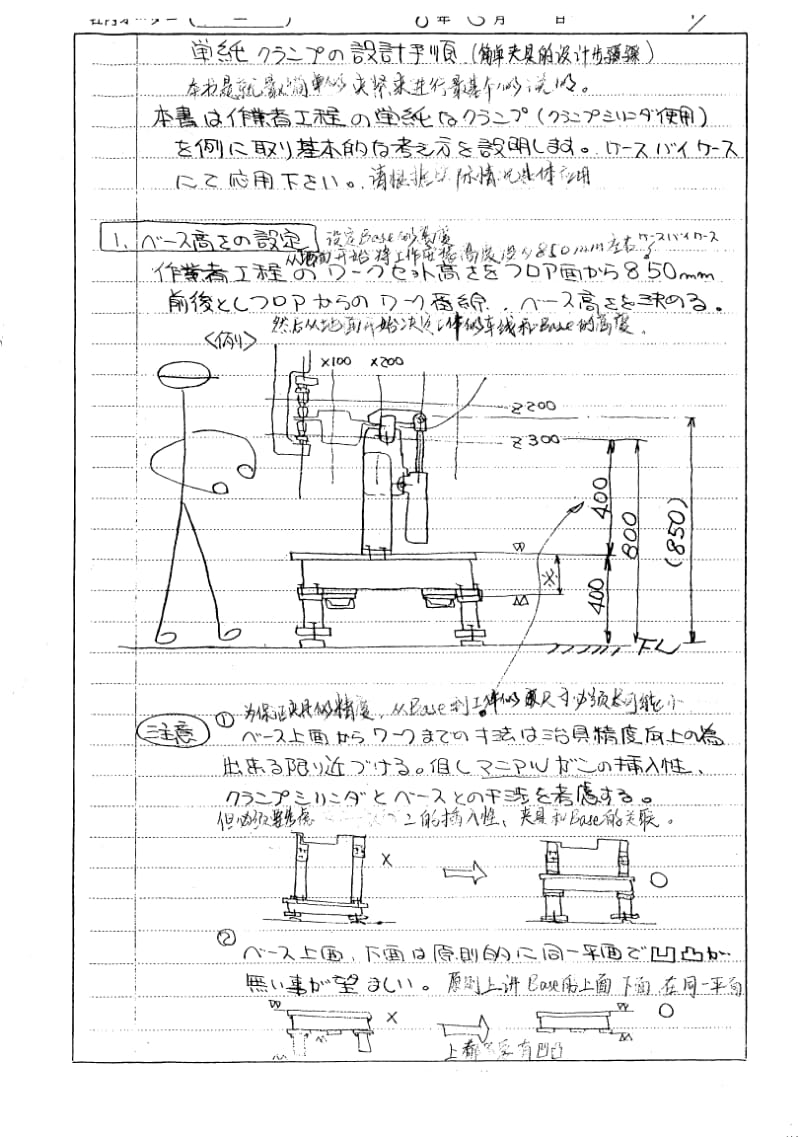 年 月 日
単純クランプの設計手順 (簡単夹具的设计步骤)
本書は作業者工程の単純なクランプ(クランプシリンダ使用)
を例に取り基本的な考え方を説明します。ケースバイケース
にて応用下さい。 请根据 情况具体应用
1. ベース高さの設定 设定Base的高度
开始 850mm左右 ケースバイケース
作業者工程のワークセット高さをフロア面から850mm
前後としフロアからのワーク番線、ベース高さを決める。
然后从地面开始决定 车线和Base的高度。
<例>
X100 X200
Z200
Z300
400
800
(850)
400
FL
注意
① 为保证夹具的精度,从Base到工件的 尺寸必须尽可能小
ベース上面からワークまでの寸法は治具精度向上の為
出来る限り近づける。但しマニアルガンの挿入性、
クランプシリンダとベースとの干渉を考慮する。
但必须 的插入性、夹具和Base的关联。
X ○
②
ベース上面、下面は原則的に同一平面で凹凸が
無い事が望ましい。 原则上讲Base的上面 下面 在同一平面
X ○
上 有凹凸